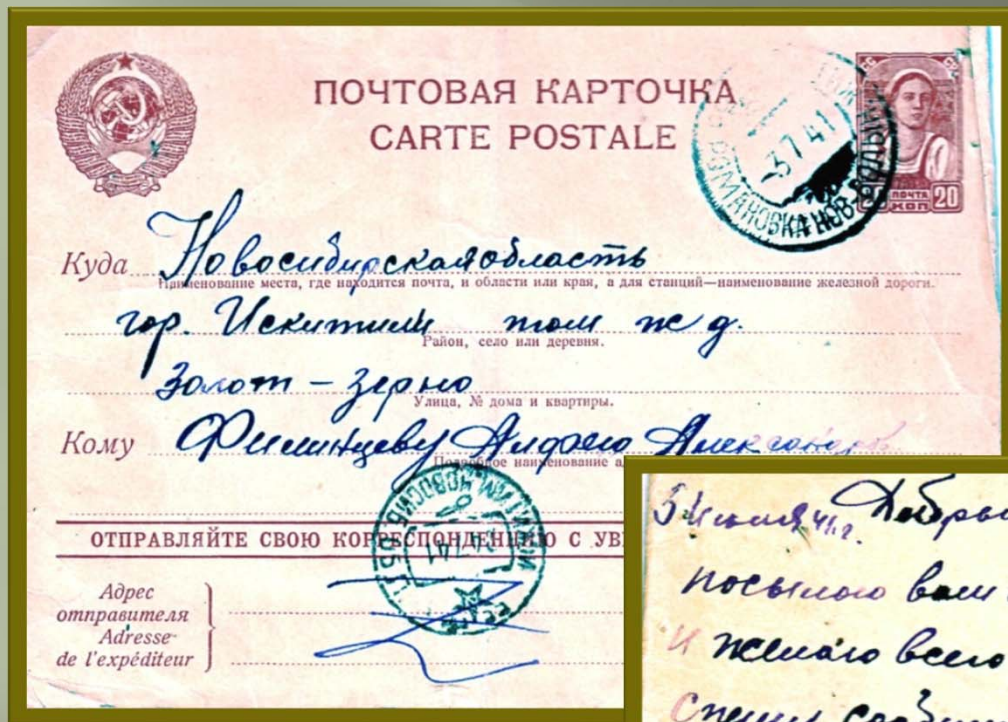 ПОЧТОВАЯ КАРТОЧКА
CARTE POSTALE
3 7 41
РОМАНОВКА НОВ-ВОЛЫН
ПОЧТА
20 КОП 20
Куда Новосибирская область
Наименование места, где находится почта, и области или края, а для станций—наименование железной дороги.
гор. Искитим том ж д.
Район, село или деревня.
Золот – Зерно
Улица, № дома и квартиры.
Кому Филинцеву Александ
Подробное наименование
ОТПРАВЛЯЙТЕ СВОЮ КОРРЕСПОНДЕНЦИЮ С УВ
НОВОСИБ. ОБЛ.
7 41
Адрес
отправителя
Adresse
de l'expéditeur
41г. Добры
посылаю вам
и желаю всего